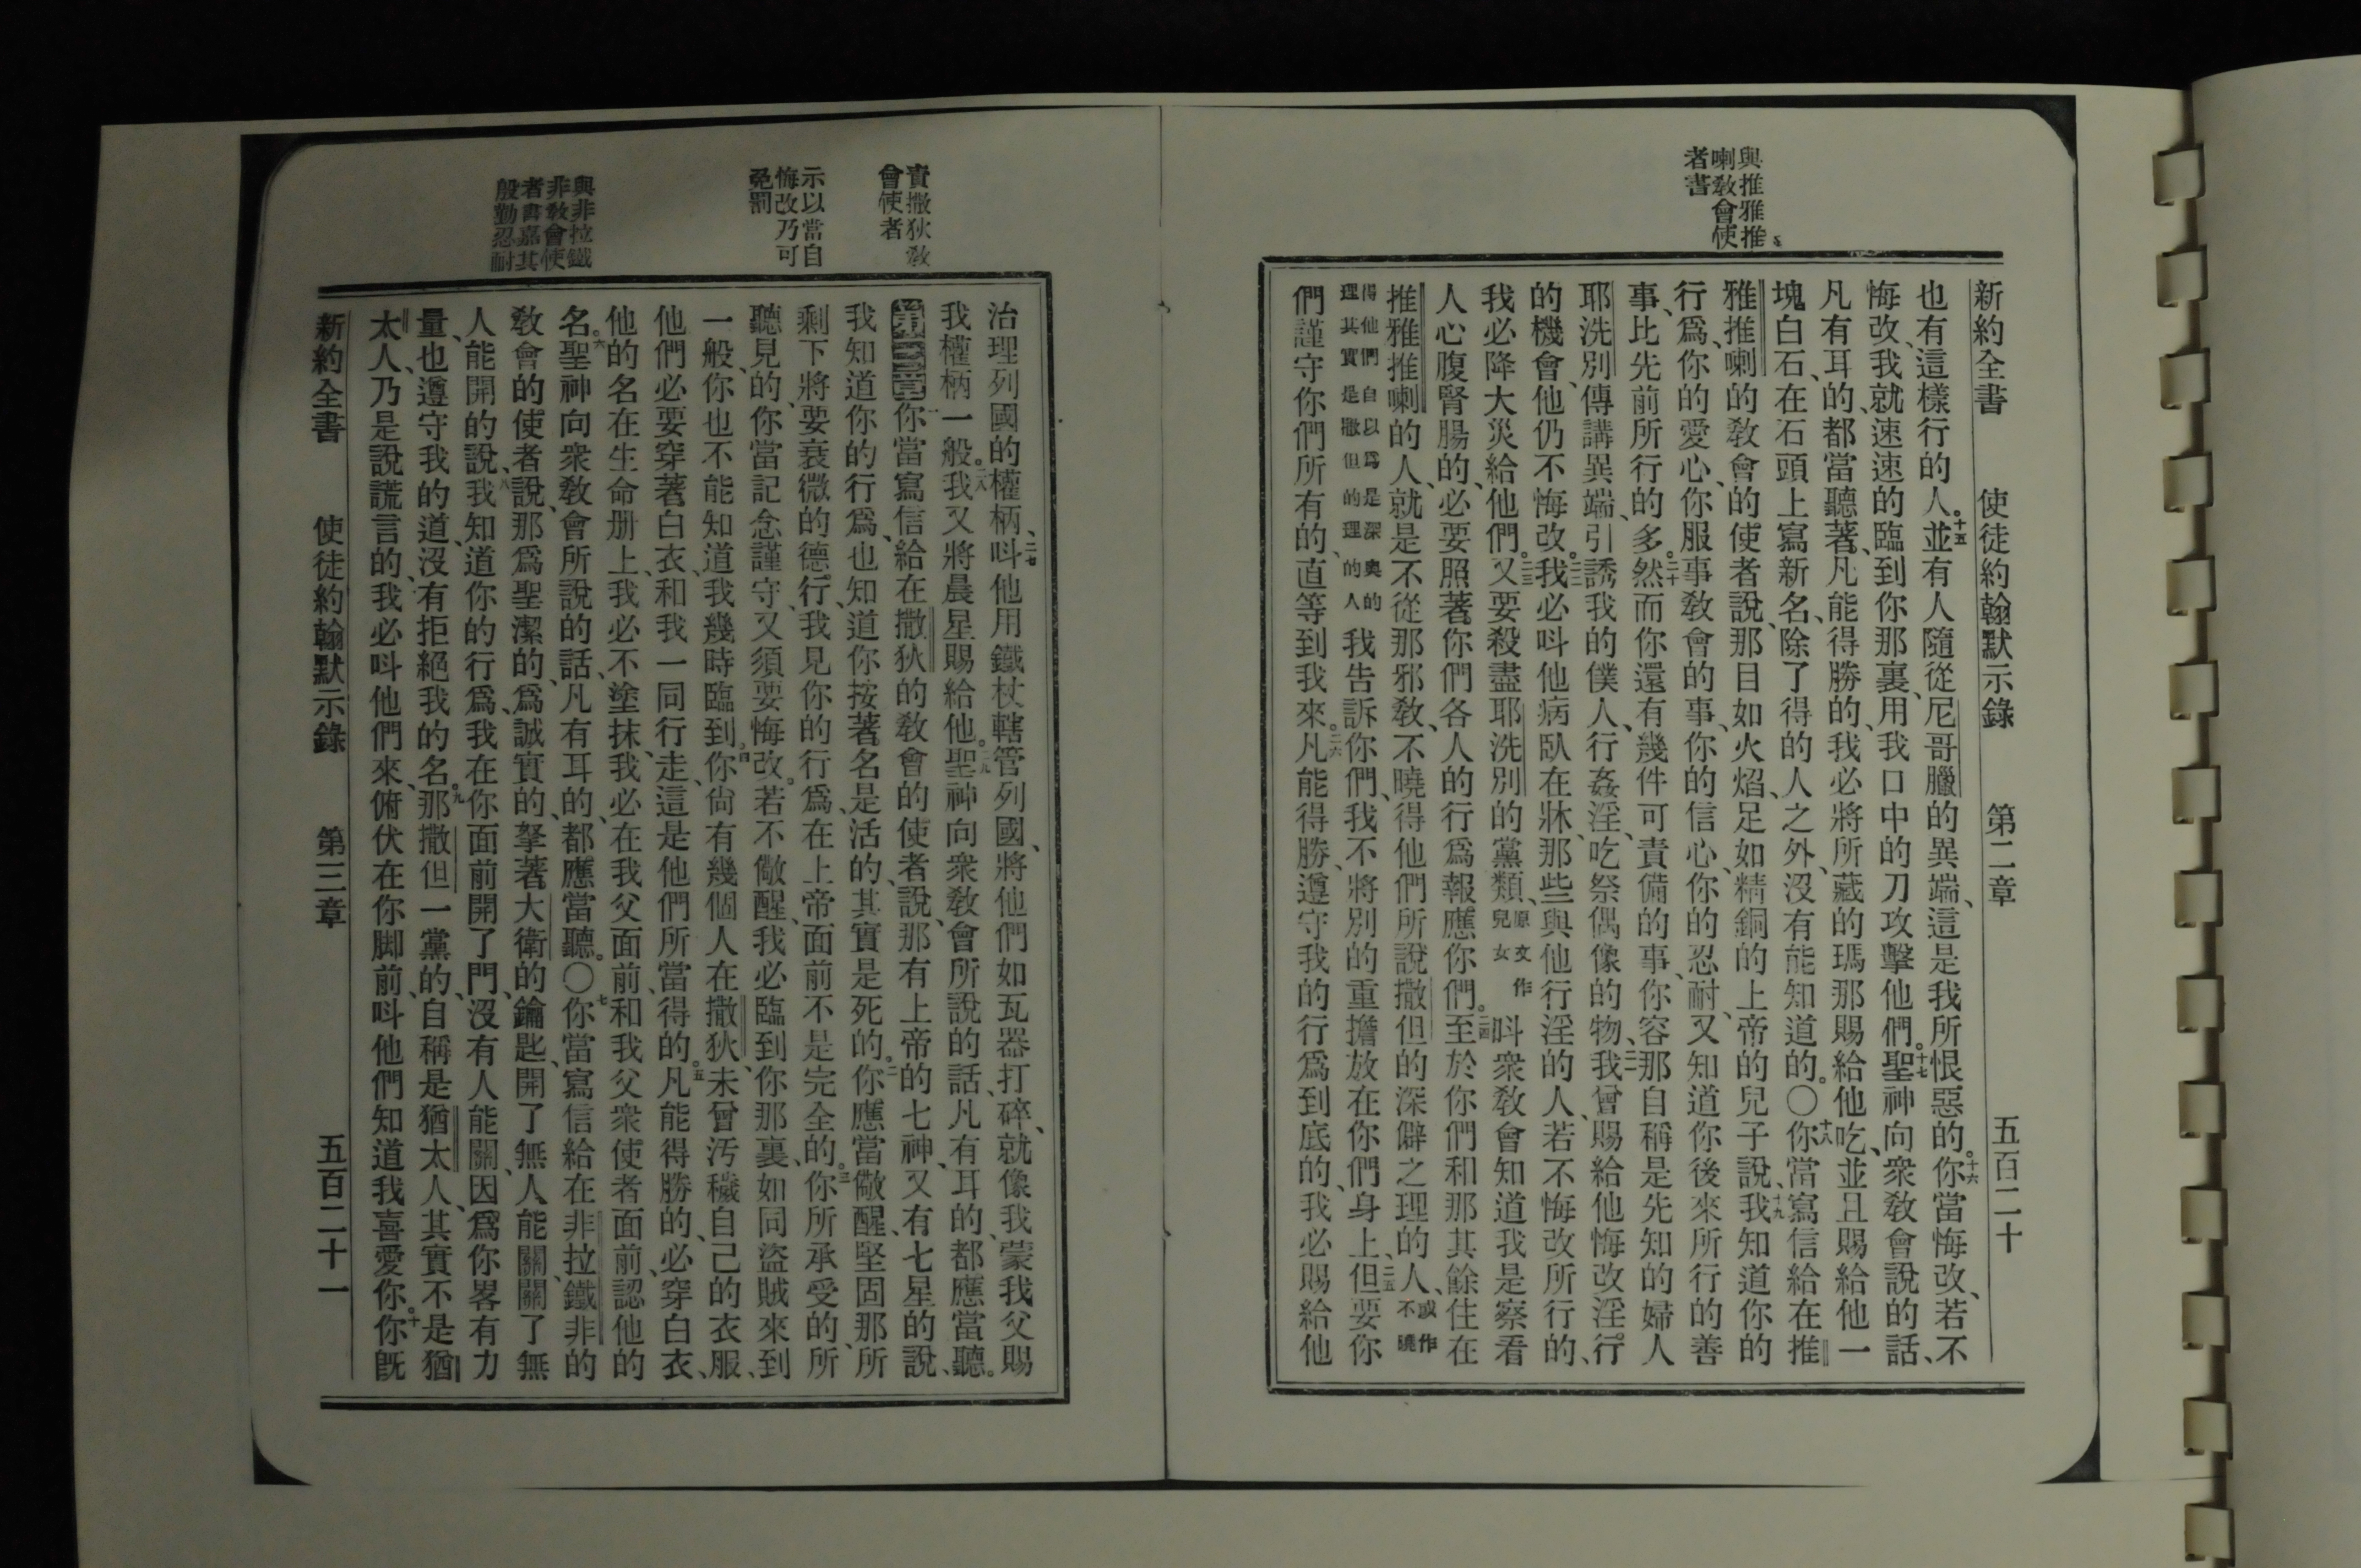 與推雅推
喇教會使
者書
新約全書 使徒約翰默示錄 第二章 五百二十
也有這樣行的人。十五並有人隨從尼哥臘的異端、這是我所恨惡的。十六你當悔改、若不
悔改、我就速速的臨到你那裏、用我口中的刀攻擊他們。十七聖神向衆教會說的話、
凡有耳的、都當聽著、凡能得勝的、我必將所藏的瑪那賜給他吃、並且賜給他一
塊白石、在石頭上寫新名、除了得的人之外、沒有能知道的。〇十八你當寫信給在推
雅推喇的教會的使者說、那目如火焰、足如精銅的上帝的兒子說、十九我知道你的
行爲、你的愛心、你服事教會的事、你的信心、你的忍耐、又知道你後來所行的善
事、比先前所行的多。二十然而你還有幾件可責備的事、你容那自稱是先知的婦人
耶洗別傳講異端、引誘我的僕人、行姦淫、吃祭偶像的物、二一我曾賜給他悔改淫行
的機會、他仍不悔改。二二我必呌他病臥在牀、那些與他行淫的人、若不悔改所行的、
我必降大災給他們。二三又要殺盡耶洗別的黨類、原文作兒女呌衆教會知道我是察看
人心腹腎腸的、必要照著你們各人的行爲報應你們。二四至於你們和那其餘住在
推雅推喇的人、就是不從那邪教、不曉得他們所說撒但的深僻之理的人、或作不曉
得他們自以爲是深奧的理其實是撒但的理的人我告訴你們、我不將別的重擔放在你們身上、二五但要你
們謹守你們所有的、直等到我來。二六凡能得勝、遵守我的行爲到底的、我必賜給他
責撒狄教
會使者
示以當自
悔改乃可
免罰
與非拉鐵
非教會使
者書嘉其
殷勤忍耐
治理列國的權柄、二七呌他用鐵杖轄管列國、將他們如瓦器打碎、就像我蒙我父賜
我權柄一般。二八我又將晨星賜給他。二九聖神向衆教會所說的話、凡有耳的、都應當聽。
第三章一你當寫信給在撒狄的教會的使者說、那有上帝的七神、又有七星的說、
我知道你的行爲、也知道你按著名是活的、其實是死的。二你應當儆醒、堅固那所
剩下將要衰微的德行、我見你的行爲、在上帝面前不是完全的。三你所承受的、所
聽見的、你當記念謹守、又須要悔改。若不儆醒、我必臨到你那裏、如同盜賊來到
一般、你也不能知道、我幾時臨到。四你尙有幾個人在撒狄、未曾汚穢自己的衣服、
他們必要穿著白衣、和我一同行走、這是他們所當得的。五凡能得勝的、必穿白衣、
他的名在生命册上、我必不塗抹、我必在我父面前、和我父衆使者面前、認他的
名。六聖神向衆教會所說的話、凡有耳的、都應當聽。〇七你當寫信給在非拉鐵非的
教會的使者說、那爲聖潔的、爲誠實的、拏著大衛的鑰匙、開了無人能關、關了無
人能開的說、八我知道你的行爲、我在你面前開了門、沒有人能關、因爲你畧有力
量、也遵守我的道、沒有拒絕我的名。九那撒但一黨的、自稱是猶太人、其實不是猶
太人、乃是說謊言的、我必呌他們來、俯伏在你脚前、呌他們知道我喜愛你。十你旣
新約全書 使徒約翰默示錄 第三章 五百二十一